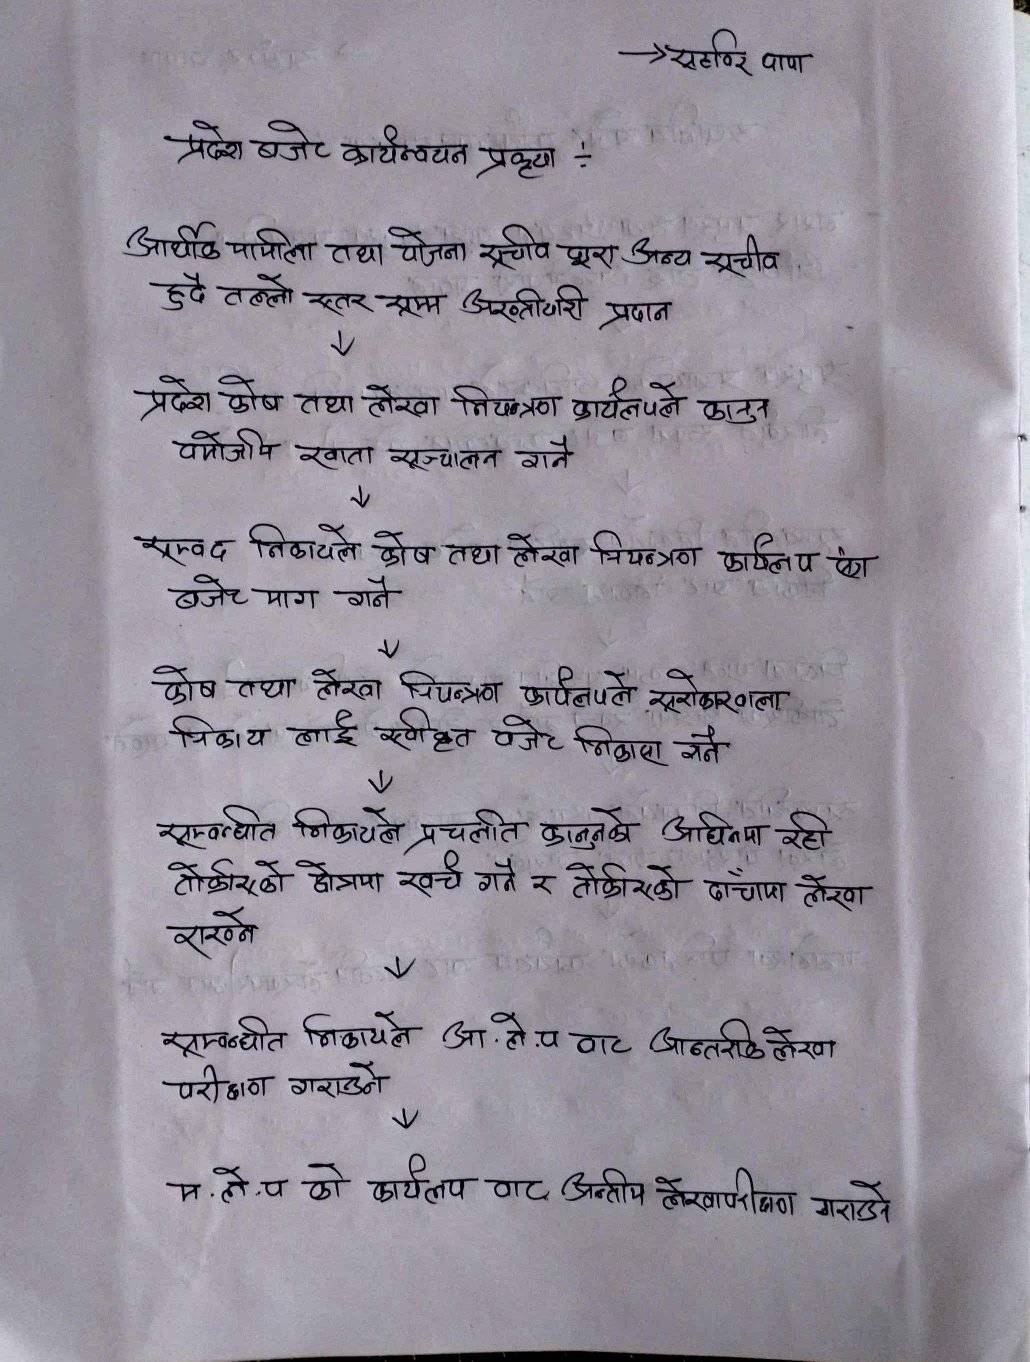 → सहविर थापा
प्रदेश बजेट कार्यन्वयन प्रकृया ÷
आर्थीक मामिला तथा योजना सचीव द्वारा अन्य सचीव
हुदै तल्लो स्तर सम्म अख्तीयारी प्रदान
↓
प्रदेश कोष तथा लेखा नियन्त्रण कार्यलयले कानुन
वमोजीम खाता सञ्चालन गर्ने
↓
सम्वद निकायले कोष तथा लेखा नियन्त्रण कार्यलय संग
बजेट माग गर्ने
↓
कोष तथा लेखा नियन्त्रण कार्यलयले सरोकारवाला
निकाय लाई स्वीकृत वजेट निकासा गर्ने
↓
सम्वन्धीत निकायले प्रचलीत कानुनको अधिनमा रही
तोकीएको क्षेत्रमा खर्च गर्ने र तोकीएको ढाँचामा लेखा
राख्ने
↓
सम्वन्धीत निकायले आ.ले.प वाट आन्तरीक लेखा
परीक्षण गराउने
↓
म.ले.प को कार्यलय वाट अन्तीम लेखापरीक्षण गराउने